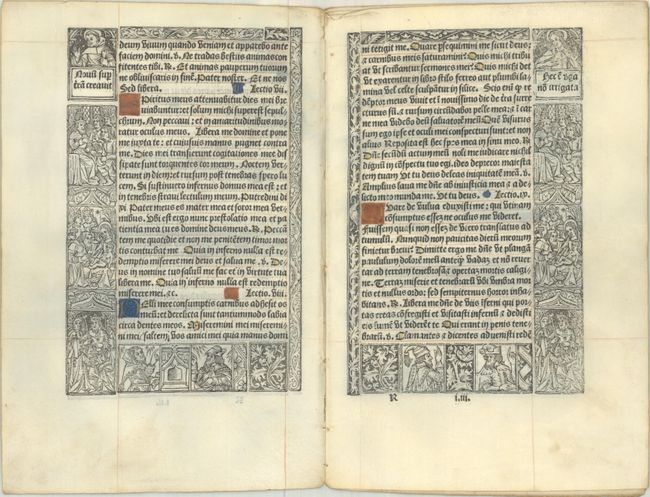 Noua sup
terrā creauit
deum viuum quando veniam et apparebo ante
faciem domini. v. Ne tradas bestiis animas con
fitentes tibi. R. Et animas pauperum tuorum
ne obliuiscaris in finē. Pater noster. Et ne nos
Sed libera. Lectio vii.
Spiritus meus attenuabitur dies mei bre
uiabuntur: et solum michi superest sepul
chrum. Non peccaui: et in amaritudinibus mo
ratur oculus meus. Libera me domine et pone
me iuxta te: et cuiusuis manus pugnet contra
me. Dies mei transierunt cogitationes mee dis
sipate sunt torquentes cor meum. Noctem ver
terunt in diem: et rursum post tenebras spero lu
cem. Si sustinuero infernus domus mea est: et
in tenebris straui lectulum meum. Putredini di
xi Pater meus es mater mea et soror mea ver
mibus. Vbi est ergo nunc prestolatio mea et pa
tientia mea tu es domine deus meus. R. Peccā
tem me quotidie et non me penitētem timor mor
tis conturbat me. Quia in inferno nulla est re
demptio miserere mei deus et salua me. v. De
us in nomine tuo saluū me fac et in virtute tua
libera me. Quia in inferno nulla est redemptio
miserere mei. ꝛc. Lectio. viii.
Pelli mee consumptis carnibus adhesit os
meū: et derelicta sunt tantummodo labia
circa dentes meos. Miseremini mei miseremi
ni mei / saltem vos amici mei quia manus domi
ni tetigit me. Quare psequimini me sicut deus:
ꝛ carnibus meis saturamini: Quis michi tribu
at vt scribantur sermones mei: Quis michi det
vt exarentur in libro stilo ferreo aut plumbi lami
na vel celte sculpantur in silice. Scio enī ꝙ re
dēptor meus viuit et ī nouissimo die de terra surre
cturus sū: ꝛ rursum circūdabor pelle mea: ꝛ ī car
ne mea videbo deū saluatorē meū. Quē visurus
sum ego ipse et oculi mei conspecturi sunt: et non
alius Reposita est hec spes mea in sinu meo. R.
Dñe secūdū actum meū noli me iudicare nichil
dignū in cōspectu tuo egi. ideo deprecor maiesta
tem tuam vt tu deus deleas iniquitatē meā. v.
Amplius laua me dñe ab iniusticia mea ꝛ a de
licto meo munda me. Vt tu deus. Lectio. ix.
Quare de vulua eduxisti me: qui vtinam
cōsumptus essem ne oculus me videret.
Fuissem quasi non essem de vtero translatus ad
tumulū. Nunquid non paucitas dierū meorum
finietur breui: Dimitte ergo me dñe vt plangā
paululum dolorē meū anteq̄ vadam et nō reuer
tar ad terram tenebrosā ꝛ opertā mortis caligi
ne. Terrā miserie et tenebrarū vbi vmbra mor
tis et nullus ordo: sed sempiternus horror inha
bitans. R. Libera me dñe de viis iferni qui por
tas ereas cōfregisti et visitasti infernū ꝛ dedisti
eis lumē vt viderēt te Qui erant in penis tene
brarū. v. Clamantes ꝛ dicentes aduenisti redē
Hec ꝟga
nō irrigata
R
l.iii.